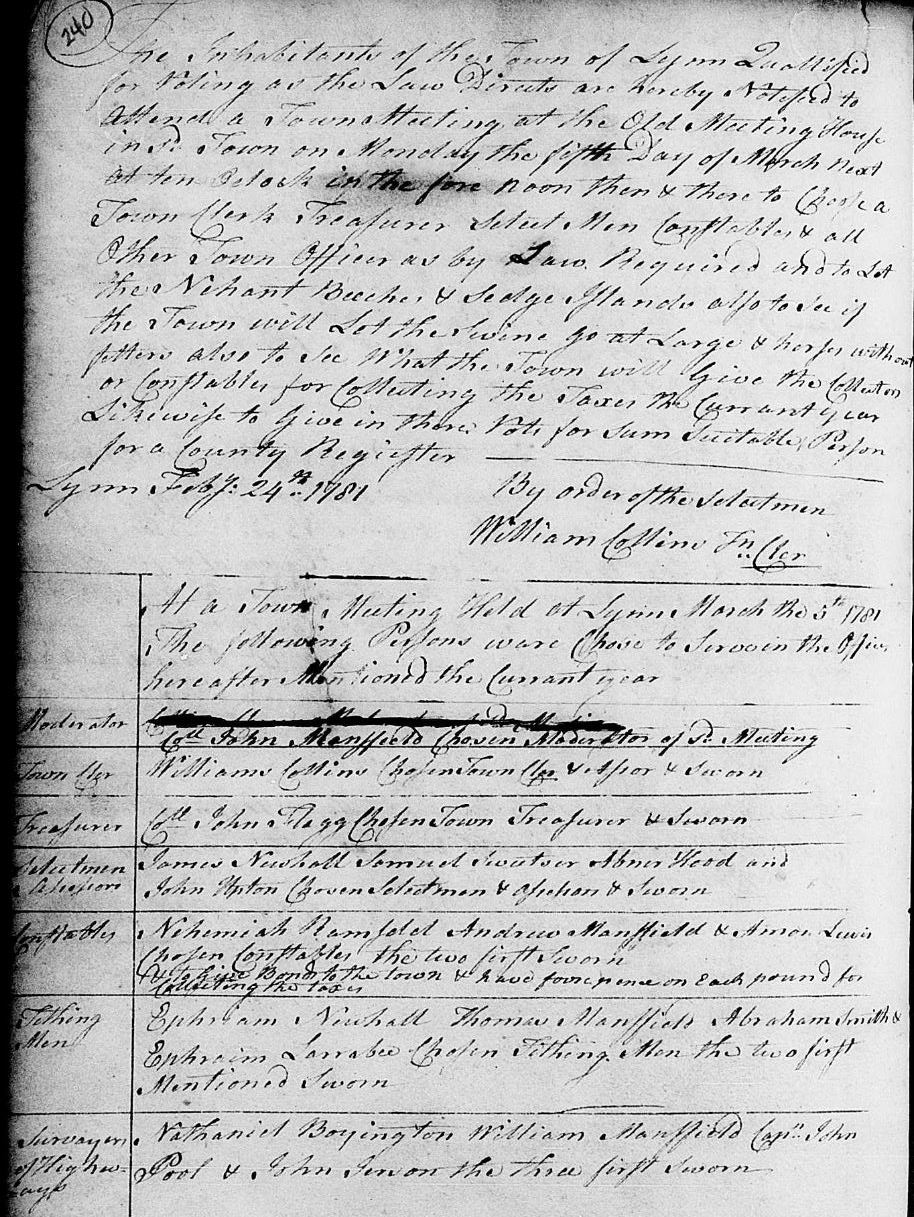 240
The Inhabitants of the Town of Lynn Quallified
for Voting as the Law Directs are hereby Notefied to
Attend a Town Meeting at the Old Meeting House
in sd. Town on Monday the fifth Day of March next
at ten Oclock in the fore noon then & there to Choose a
Town Clerk Treasurer Select Men Constables & all
Other Town Officer as by Law Required and to Let
the Nehant Beeches & Sedge Islands also to See if
the Town will Let the Swine go at Large & horses without
fetters also to See What the Town will Give the Collectors
or Constables for Collecting the Taxes the Currant year
Likewise to Give in there Vote for Sum Suitable Person
for a County Regiester
Lynn Feby. 24th. 1781
By order of the Selectmen
William Collins Tn. Cler
At a Town Meeting Held at Lynn March the 5th 1781
The following Persons ware Chose to Serve in the Offices
hereafter Mentioned the Currant year
Moderator
Coll John Mansfield Chosen Moderator of sd. Meeting
Town Cler
Williams Collins Chosen Town Cler & Assor & Sworn
Treasurer
Coll John Flagg Chosen Town Treasurer & Sworn
Selectmen
& Assessors
James Newhall Samuel Sweetser Abner Hood and
John Upton Chosen Selectmen & & Sworn
Constables
Nehemiah Ramsdel Andrew Mansfield & Amos Lewis
Chosen Constables the two first Sworn
& to Give Bonds to the town & have fore pence on Each pound for
Collecting the taxes
Tithing
Men
Ephraim Newhall Thomas Mansfield Abraham Smith &
Ephraim Larrabee Chosen Tithing Men the two first
Mentioned Sworn
Survayers
of Highw-
ays
Nathaniel Boyington William Mansfield Capn. John
Pool & John the three first Sworn